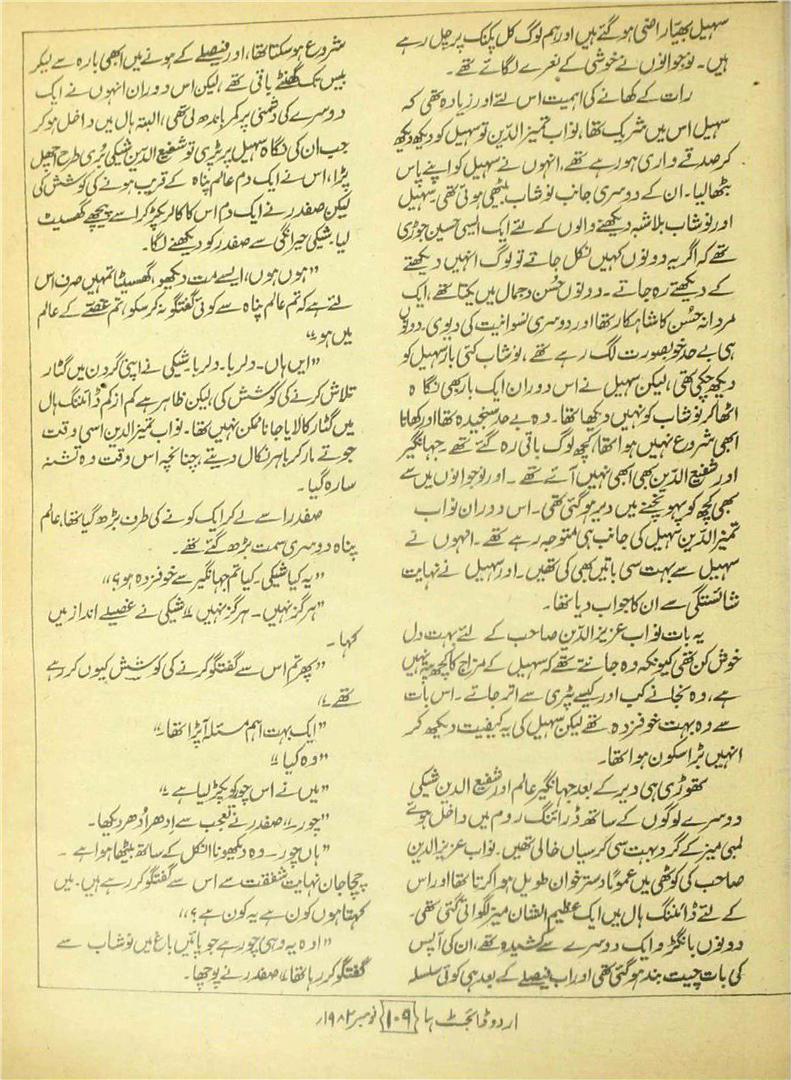 سہیل بھیّا راضی ہو گئے ہیں اور ہم لوگ کل پکنک پر چل رہے
ہیں۔ نوجوانوں نے خوشی کے نعرے لگائے تھے۔
رات کے کھانے کی اہمیت اس لئے اور زیادہ تھی کہ
سہیل اس میں شریک تھا، نواب تمیز الدّین تو سہیل کو دیکھ دیکھ
کر صدقے واری ہو رہے تھے، انہوں نے سہیل کو اپنے پاس
بٹھا لیا۔ ان کے دوسری جانب نوشاب بیٹھی ہوئی تھی۔ سہیل
اور نوشاب بلاشبہ دیکھنے والوں کے لئے ایک ایسی حسین جوڑی
تھے کہ اگر یہ دونوں کہیں نکل جاتے تو لوگ انہیں دیکھتے
کے دیکھتے رہ جاتے۔ دونوں حُسن و جمال میں یکتا تھے، ایک
مردانہ حُسن کا شاہکار تھا اور دوسری نسوانیت کی دیوی، دونوں
ہی بے حد خوبصورت لگ رہے تھے، نوشاب کئی بار سہیل کو
دیکھ چکی تھی، لیکن سہیل نے اس دوران ایک بار بھی نگاہ
اٹھا کر نوشاب کو نہیں دیکھا تھا۔ وہ بے حد سنجیدہ تھا اور کھانا
ابھی شروع نہیں ہوا تھا، کچھ لوگ باقی رہ گئے تھے۔ جہانگیر
اور شفیع الدّین بھی ابھی نہیں آئے تھے۔ اور نوجوانوں میں سے
بھی کچھ کو پہونچنے میں دیر ہو گئی تھی۔ اس دوران نواب
تمیز الدّین سہیل کی جانب ہی متوجہ رہے تھے۔ انہوں نے
سہیل سے بہت سی باتیں بھی کی تھیں۔ اور سہیل نے نہایت
شائستگی سے ان کا جواب دیا تھا۔
یہ بات نواب عزیز الدّین صاحب کے لئے بہت دل
خوش کن تھی کیونکہ وہ جانتے تھے کہ سہیل کے مزاج کا کچھ پتہ نہیں
ہے، وہ نجانے کب اور کیسے پٹری سے اتر جائے۔ اس بات
سے وہ بہت خوفزدہ تھے لیکن سہیل کی یہ کیفیت دیکھ کر
انہیں بڑا سکون ہوا تھا۔
تھوڑی ہی دیر کے بعد جہانگیر عالم اور شفیع الدین شیکی
دوسرے لوگوں کے ساتھ ڈرائنگ روم میں داخل ہوئے
لمبی میز کے گرد بہت سی کرسیاں خالی تھیں۔ نواب عزیز الدین
صاحب کی کوٹھی میں عموماً دسترخوان طویل ہوا کرتا تھا اور اس
کے لئے ڈائننگ ہال میں ایک عظیم الشان میز لگوائی گئی تھی۔
دونوں بانگڑو ایک دوسرے سے کشیدہ تھے، ان کی آپس
کی بات چیت بند ہو گئی تھی اور اب فیصلے کے بعد ہی کوئی سلسلہ
شروع ہو سکتا تھا، اور فیصلے کے ہونے میں ابھی بارہ سے لیکر
بیس تک گھنٹے باقی تھے، لیکن اس دوران انہوں نے ایک
دوسرے کی دشمنی پر کمر باندھ لی تھی، البتہ ہال میں داخل ہو کر
جب ان کی نگاہ سہیل پر پڑی تو شفیع الدین شیکی بُری طرح اچھل
پڑا، اس نے ایک دم عالم پناہ کے قریب ہونے کی کوشش کی
لیکن صفدر نے ایک دم اس کا کالر پکڑ کر اسے پیچھے گھسیٹ
لیا۔ شیکی حیرانگی سے صفدر کو دیکھنے لگا۔
”ہوں ہوں، ایسے مت دیکھو، گھسیٹا تمہیں صرف اس
لئے ہے کہ تم عالم پناہ سے کوئی گفتگو نہ کر سکو، تم غصّے کے عالم
میں ہو۔“
”ایں ہاں۔ دلربا۔ دلربا۔ شیکی نے اپنی گردن میں گٹار
تلاش کرنے کی کوشش کی، لیکن ظاہر ہے کم از کم ڈائننگ ہال
میں گٹار کا لایا جانا ممکن نہیں تھا۔ نواب تمیز الدین اسی وقت
جوتے مار کر باہر نکال دیتے، چنانچہ اس وقت وہ تشنہ
سا رہ گیا۔
صفدر اسے لے کر ایک کونے کی طرف بڑھ گیا تھا، عالم
پناہ دوسری سمت بڑھ گئے تھے۔
”یہ کیا شیکی۔ کیا تم جہانگیر سے خوفزدہ ہو؟“
”ہرگز نہیں۔ ہرگز نہیں“ شیکی نے غصیلے انداز میں
کہا۔
”پھر تم اس سے گفتگو کرنے کی کوشش کیوں کر رہے
تھے۔“
”ایک بہت اہم مسئلہ آ پڑا تھا۔“
”وہ کیا؟“
”میں نے اس چور کو پکڑ لیا ہے۔“
”چور۔“ صفدر نے تعجب سے اِدھر اُدھر دیکھا۔
”ہاں چور۔ وہ دیکھو نا انکل کے ساتھ بیٹھا ہوا ہے۔
چچا جان نہایت شفقت سے اس سے گفتگو کر رہے ہیں۔ میں
کہتا ہوں کون ہے یہ کون ہے؟“
”اوہ یہ وہی چور ہے جو پائیں باغ میں نوشاب سے
گفتگو کر رہا تھا“ صفدر نے پوچھا۔
اردو ڈائجسٹ ہما {۱۰۹} نومبر ۱۹۸۲ء